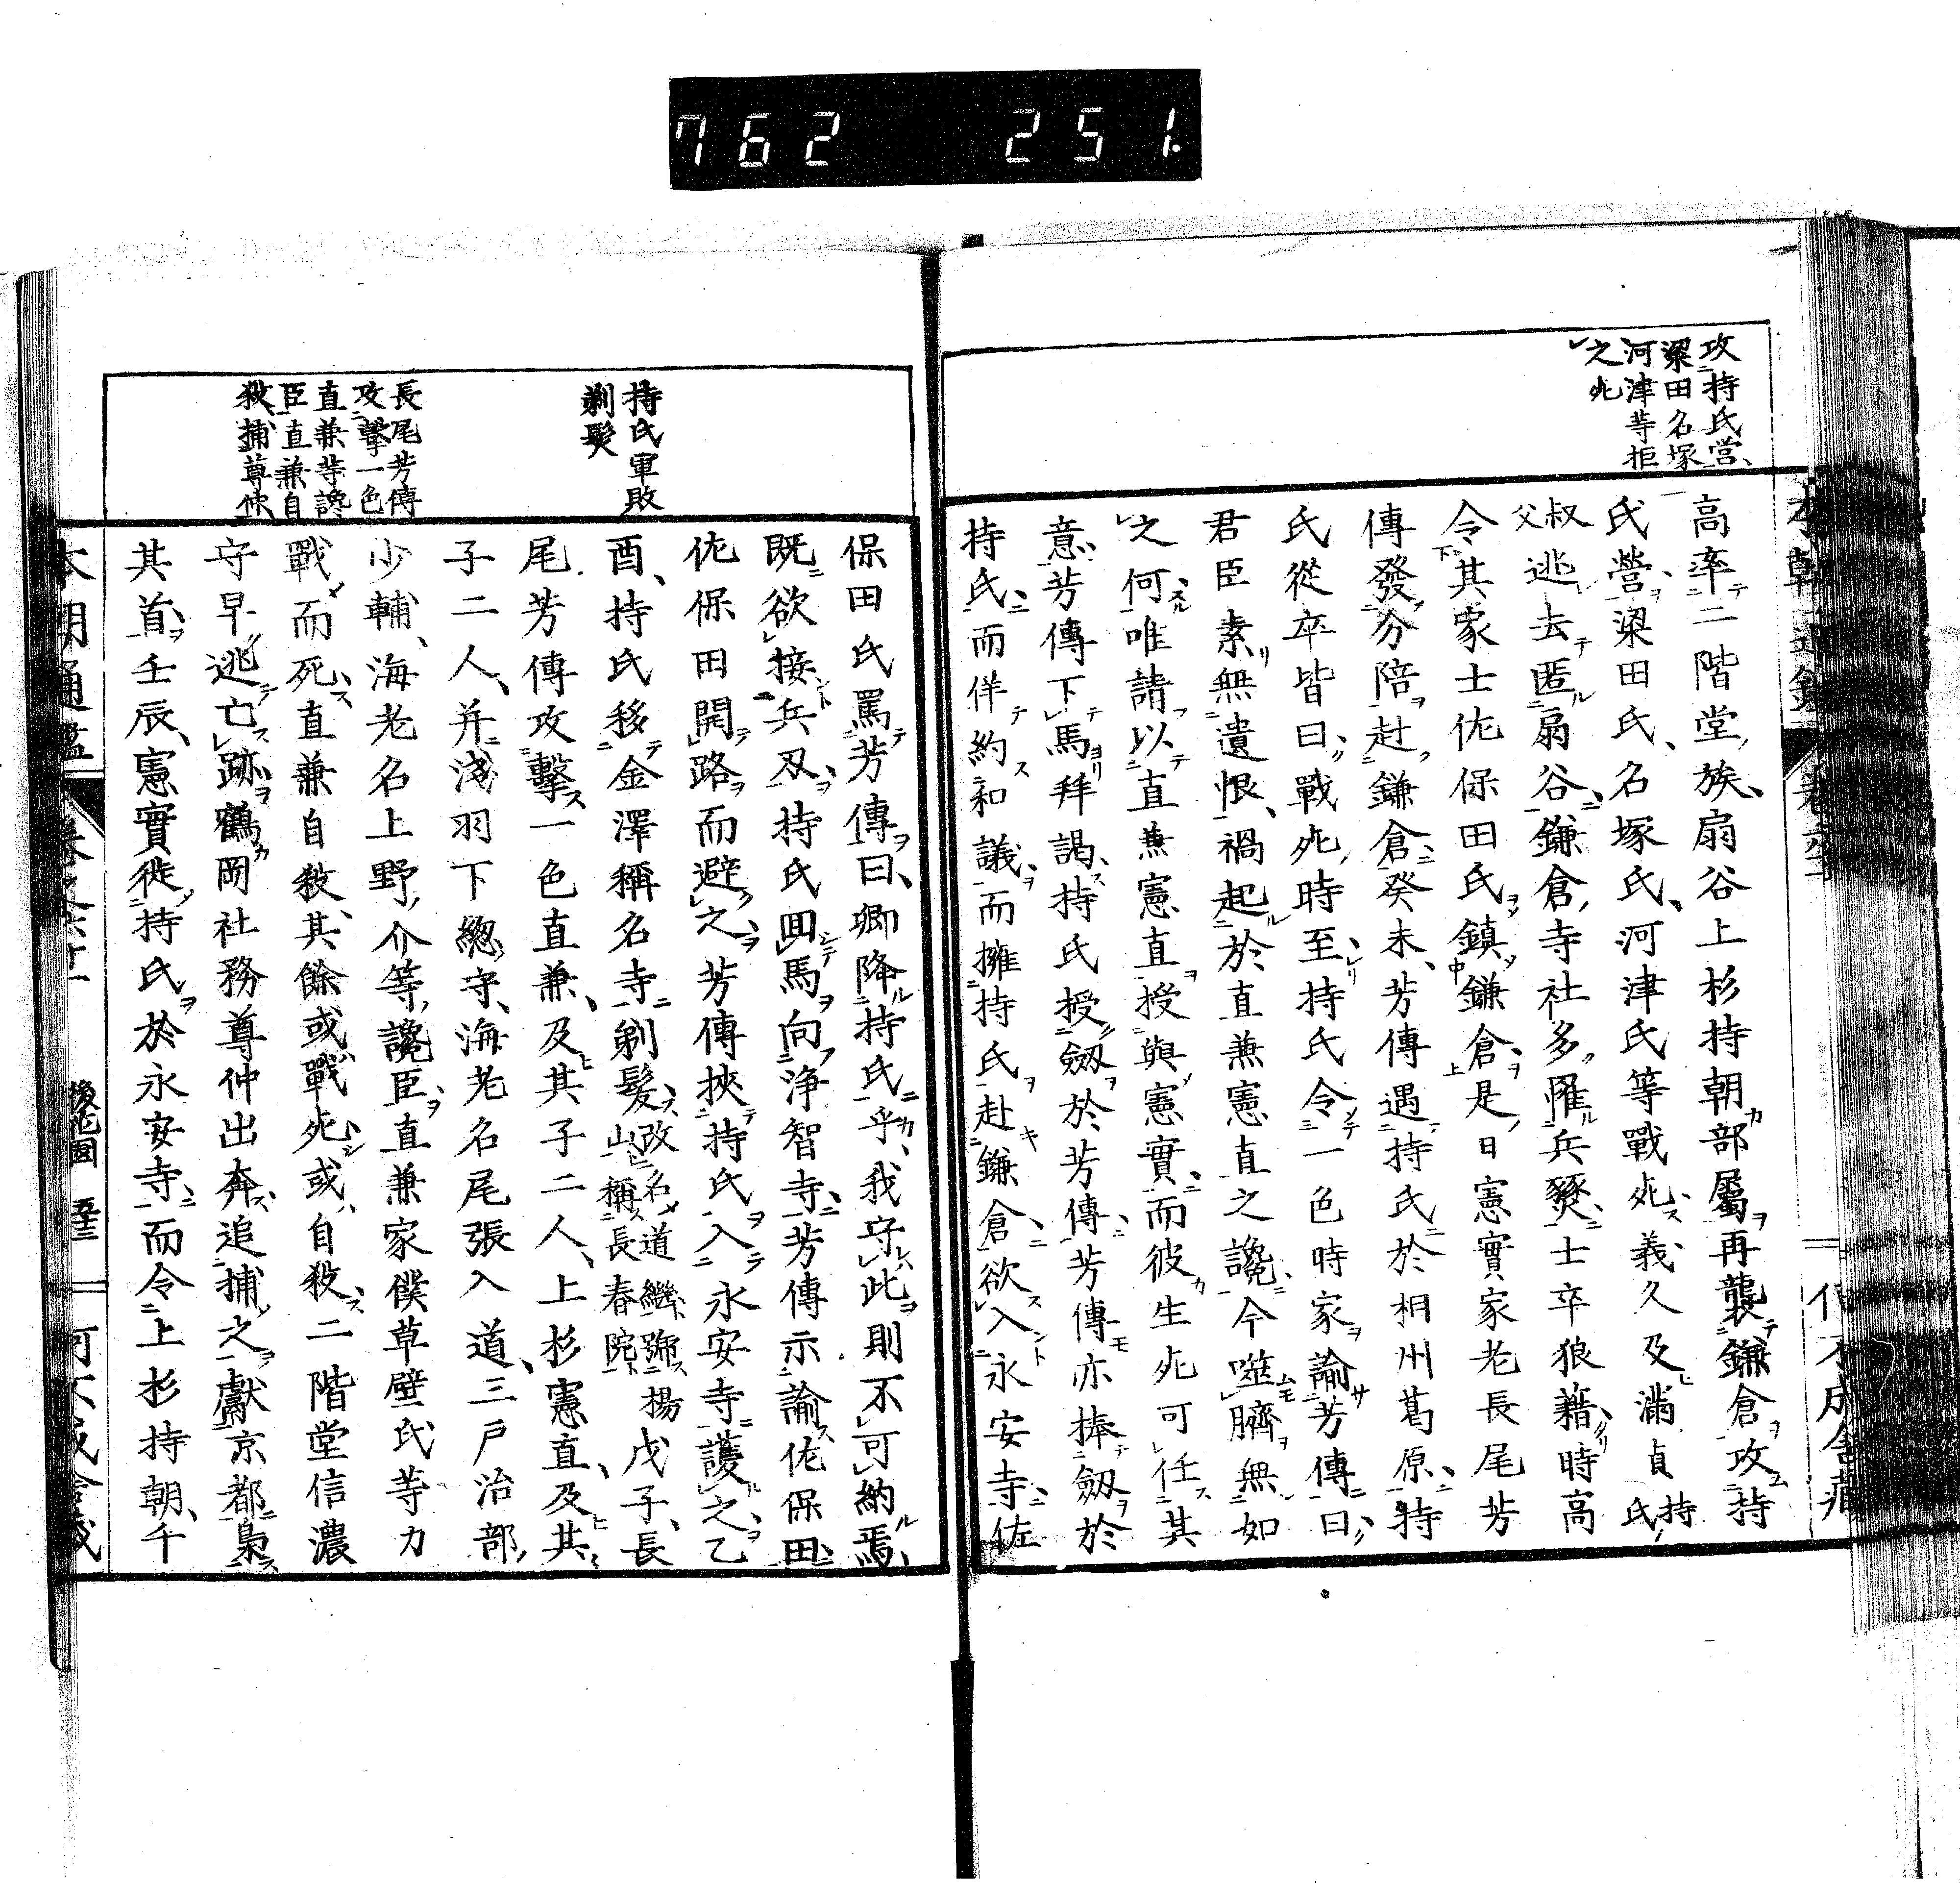 762 251.
攻持氏営、
梁田名塚
河津等拒
之死
高率二階堂族、扇谷上杉持朝部屬再襲鎌倉攻持
氏營、梁田氏、名塚氏、河津氏等戰死、義久及滿貞持氏
叔父逃去匿扇谷、鎌倉寺社多罹兵燹、士卒狼藉、時高
令其家士佐保田氏鎮鎌倉、是日憲實家老長尾芳
傳發分陪赴鎌倉、癸未、芳傳遇持氏於相州葛原、持
氏從卒皆曰、戰死時至、持氏令一色時家諭芳傳曰、
君臣素無遺恨、禍起於直兼憲直之讒、今噬臍無如
之何、唯請以直兼憲直授與憲實、而彼生死可任其
意、芳傳下馬拜謁、持氏授劔於芳傳、芳傳亦捧劔於
持氏、而佯約和議、而擁持氏赴鎌倉、欲入永安寺、佐
持氏軍敗
剃髮
長尾芳傳
攻擊一色
直兼等讒
臣直兼自
殺、捕尊仲
保田氏罵芳傳曰、卿降持氏乎、我守此則不可納焉、
既欲接兵刃、持氏回馬向淨智寺、芳傳示諭佐保田、
佐保田開路而避之、芳傳挾持氏入永安寺護之、乙
酉、持氏移金澤稱名寺剃髮、改名道繼號揚山稱長春院戊子、長
尾芳傳攻擊一色直兼、及其子二人、上杉憲直、及其
子二人、并淺羽下總守、海老名尾張入道、三戸治部
少輔、海老名上野介等讒臣、直兼家僕草壁氏等力
戰而死、直兼自殺、其餘或戰死、或自殺、二階堂信濃
守早逃亡跡、鶴岡社務尊仲出奔、追捕之獻京都梟
其首、壬辰、憲實徙持氏於永安寺、而令上杉持朝、千
本朝通鑑
後花園 五十三